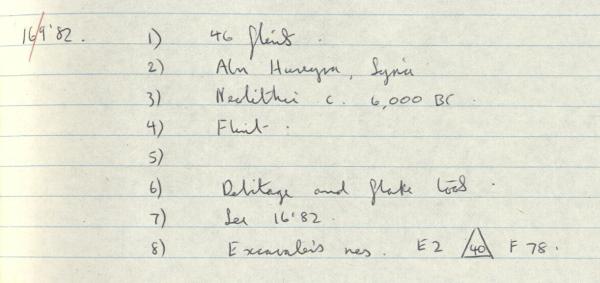 169'82. 1) 46 flints.
2) Abu Hureyra, Syria
3) Neolithic c. 6,000 BC.
4) Flint.
5)
6) Debitage and flake tools.
7) See 16'82.
8) Excavator's nos. E2 40 F 78.